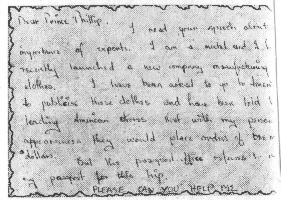 Dear Prince Phillip,
I read your speech about
importance of exports. I am a model and I h
recently launched a new company manufacturing
clothes. I have been asked to go to Ameri
to publicise these clothes and have been told t
leading American stores that with my person
appearances they would place orders of
dollars. But the passport office refuses t
my passport for this trip.
PLEASE CAN YOU HELP ME.